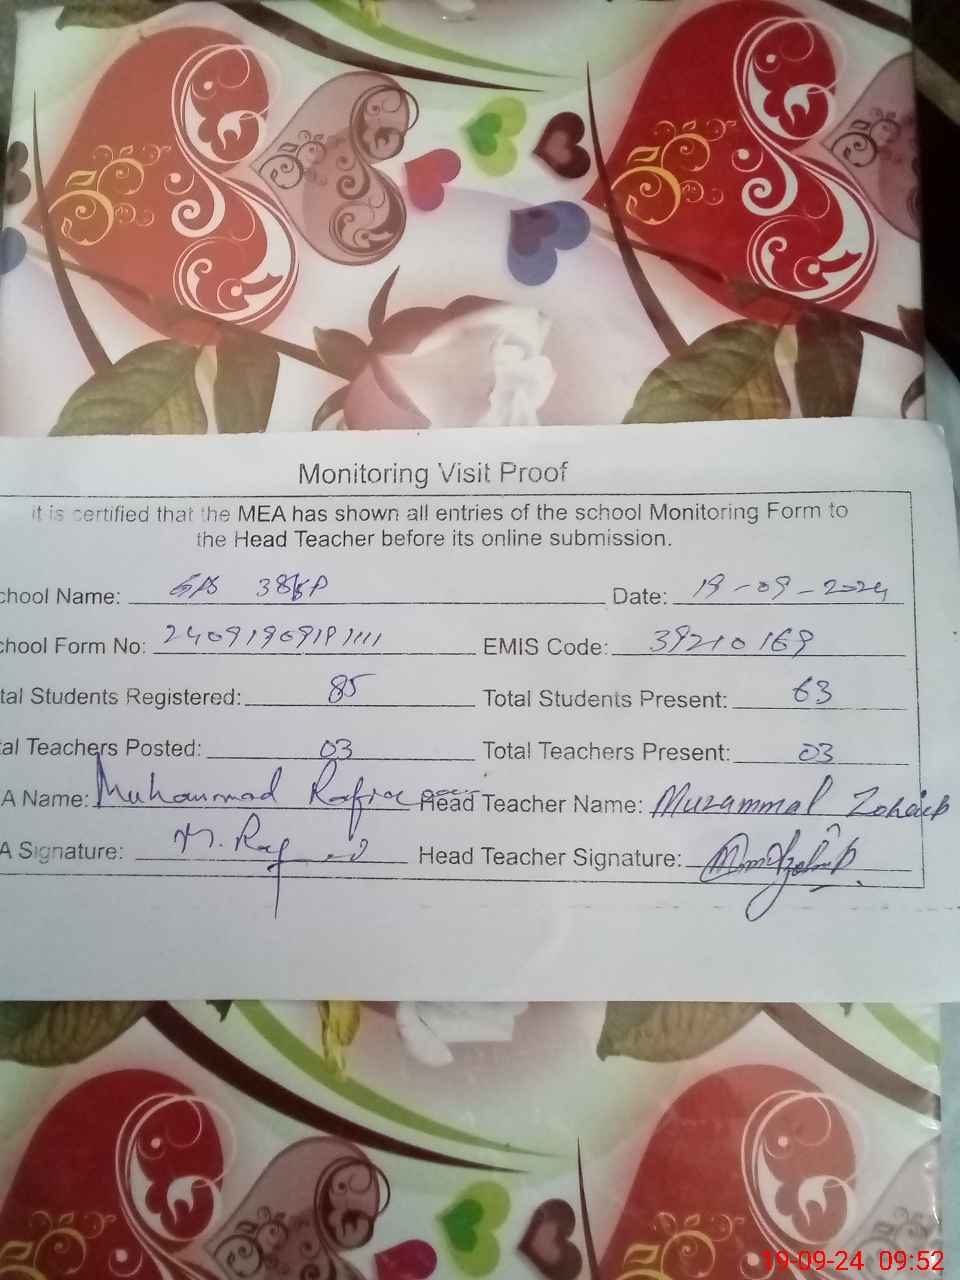 Monitoring Visit Proof
it is certified that the MEA has shown all entries of the school Monitoring Form to
the Head Teacher before its online submission.
chool Name: GPS Date: 19-09-2024
chool Form No: EMIS Code: 39210169
tal Students Registered: 85 Total Students Present: 63
al Teachers Posted: 03 Total Teachers Present: 03
A Name: Muhammad Head Teacher Name: Muzammal Zohaib
A Signature: Head Teacher Signature:
19-09-24 09:52